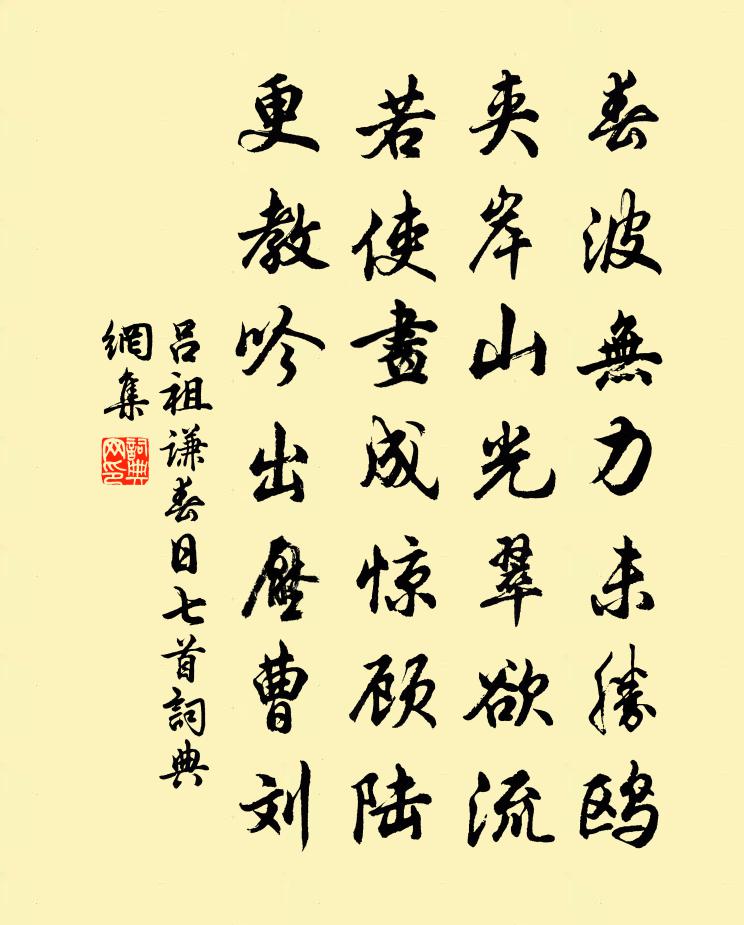 春波無力未勝鸥
夹岸山光翠欲流
若使畫成惊顾陆
更教吟出壓曹刘
吕祖谦春日七首詞典
網集
詞典網印